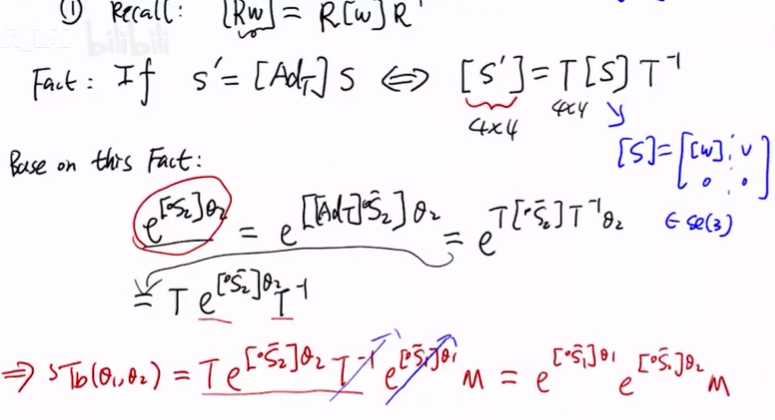 ① Recall: [Rw] = R[w]R^T
Fact: If S' = [Ad_T] S ⇔ [S'] = T [S] T^{-1}
4×4 4×4
[S] = [[w] v
0 0]
∈ se(3)
Base on this Fact:
e^{[⁰S_2]θ_2} = e^{[[Ad_T]⁰S̄_2]θ_2} = e^{T[⁰S̄_2]T^{-1}θ_2}
= T e^{[⁰S̄_2]θ_2} T^{-1}
⇒ ^sT_b(θ_1,θ_2) = T e^{[⁰S̄_2]θ_2} T^{-1} e^{[⁰S̄_1]θ_1} M = e^{[⁰S̄_1]θ_1} e^{[⁰S̄_2]θ_2} M